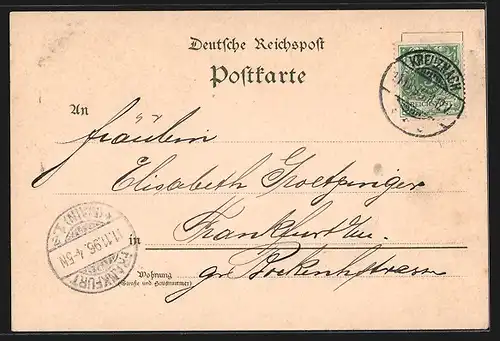 Deutsche Reichspost
Postkarte
KREUZNACH
REICHSPOST
An
Fräulein
Elisabeth Goetzinger
Frankfurt a/M.
in
gr. Bockenhstrasse
Wohnung
(Straße und Hausnummer)
FRANKFURT
(MAIN)
11.11.96. 4-5N